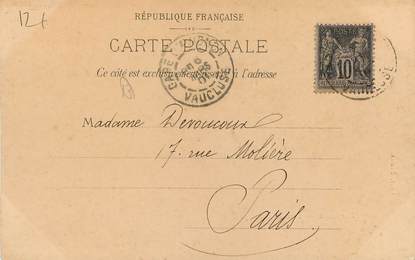 12f
RÉPUBLIQUE FRANÇAISE
CARTE POSTALE
Ce côté est exclusivement réservé à l'adresse
GARE VAUCLUSE
10
Madame Devoucoux
17 rue Molière
Paris